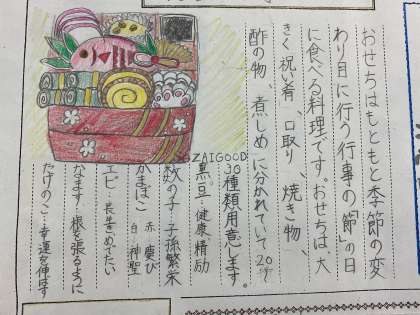 おせちはもともと季節の変
わり目に行う行事の「節」の日
に食べる料理です。おせちは、大
きく祝い肴、口取り、焼き物、
酢の物、煮しめ、に分かれていて20〜
30種類用意します。
黒豆…健康 精励
数の子…子孫繁栄
かまぼこ 赤 慶び
白 神聖
エビ…長生き めでたい
なます…根を張るように
たけのこ…幸運を伸ばす
ZAIGOOD